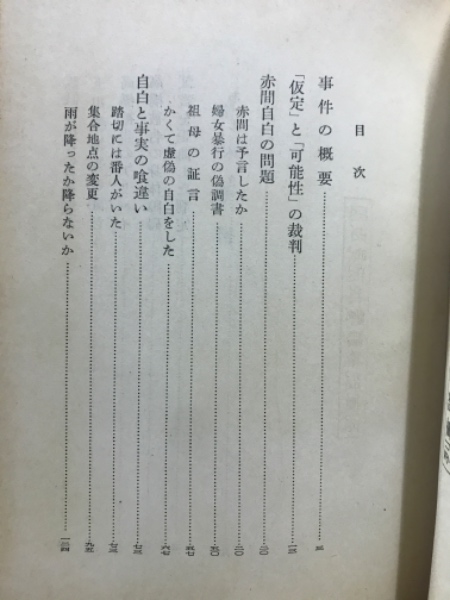 目次
事件の概要
「仮定」と「可能性」の裁判
赤間自白の問題
赤間は予言したか
婦女暴行の偽調書
祖母の証言
かくて虚偽の自白をした
自白と事実の喰違い
踏切には番人がいた
集合地点の変更
雨が降ったか降らないか